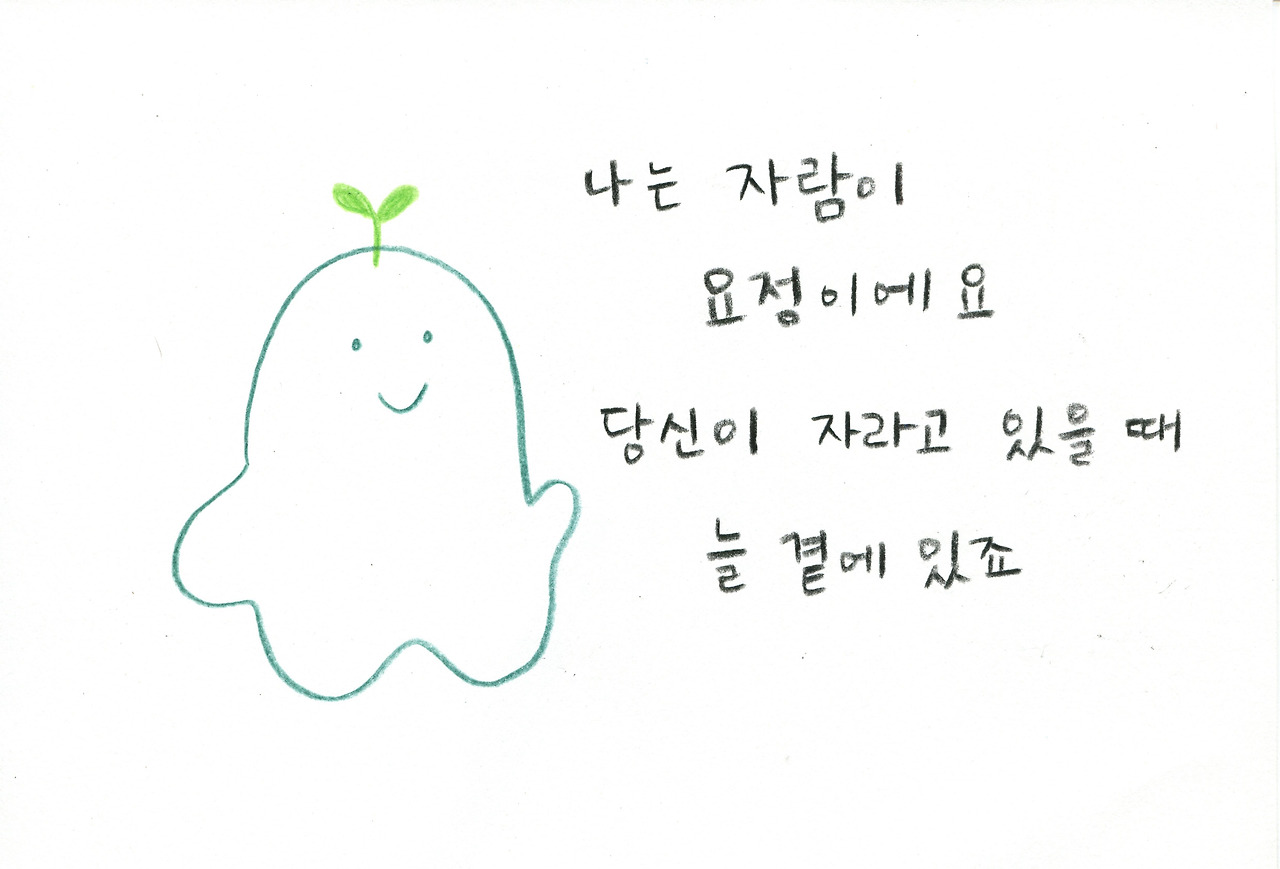 나는 자람이
요정이에요
당신이 자라고 있을 때
늘 곁에 있죠